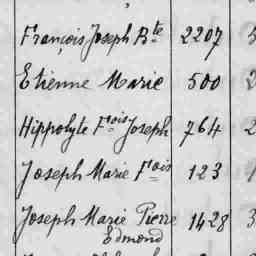 François Joseph Bte 2207
Etienne Marie 500
Hippolyte Fçois Joseph 764
Joseph Marie Fçois 123
Joseph Marie Pierre 1428
Edmond